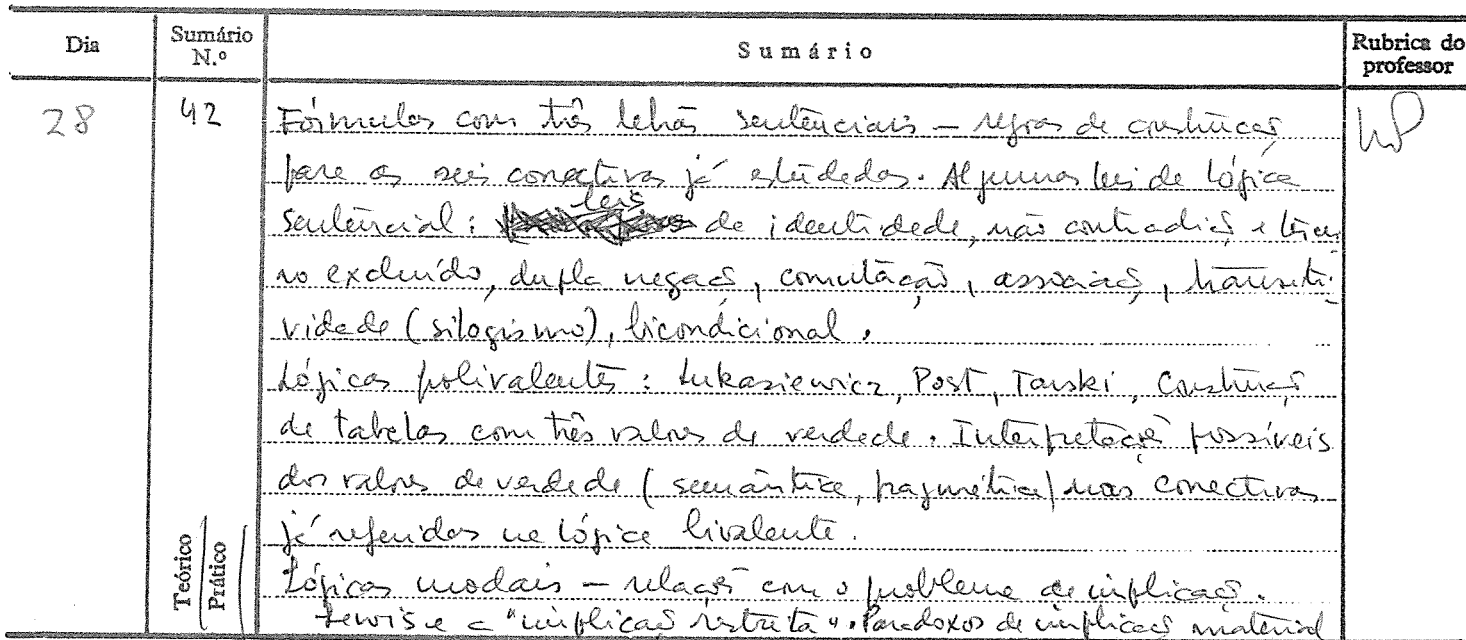 Dia
Sumário N.º
Sumário
Rubrica do professor
28
42
Fórmulas com três letras sentenciais – regras de construção
para os seis conectivos já estudados. Algumas leis de lógica
sentencial: leis de identidade, não contradição e tercei
ro excluído, dupla negação, comutação, associação, transiti-
vidade (silogismo), bicondicional.
Lógicas polivalentes: Lukasiewicz, Post, Tarski, Construção
de tabelas com três valores de verdade. Interpretações possíveis
dos valores de verdade (semântica, pragmática) nos conectivos
já referidos na lógica bivalente.
Lógicas modais – relação com o problema da implicação.
Lewis e a "implicação restrita". Paradoxos da implicação material
Teórico
Prático